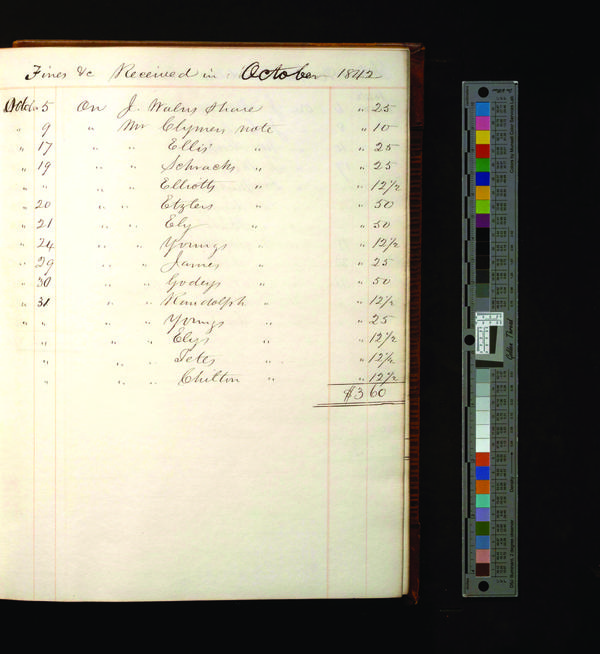 Fines &c Received in October 1842
Octobr 5 On J. Walns Share " 25
" 9 " Mr Clymers note " 10
" 17 " " Ellis' " " 25
" 19 " " Schracks " " 25
" " " " Elliotts " " 12½
" 20 " " Etzlers " " 50
" 21 " " Ely " 50
" 24 " " Youngs " " 12½
" 29 " " James " " 25
" 30 " " Godeys " " 50
" 31 " " Randolph " " 12½
" " " " Youngs " " 25
" " " Elys " " 12½
" " " " " 12½
" " " Chilton " " 12½
$3 60